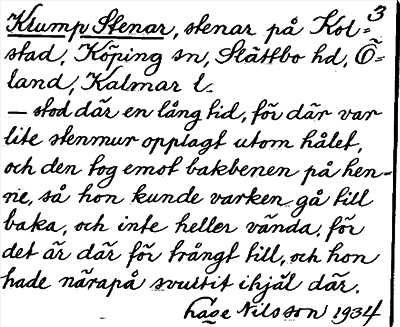 3
Klump Stenar, stenar på Kol=
stad, Köping sn, Slättbo hd, Ö=
land, Kalmar l.
— stod där en lång tid, för där var
lite stenmur opplagt utom hålet,
och den tog emot bakbenen på hen-
ne, så hon kunde varken gå till
baka, och inte heller vända. för
det är där för trångt till, och hon
hade närapå svultit ihjäl där.
Nilsson 1934